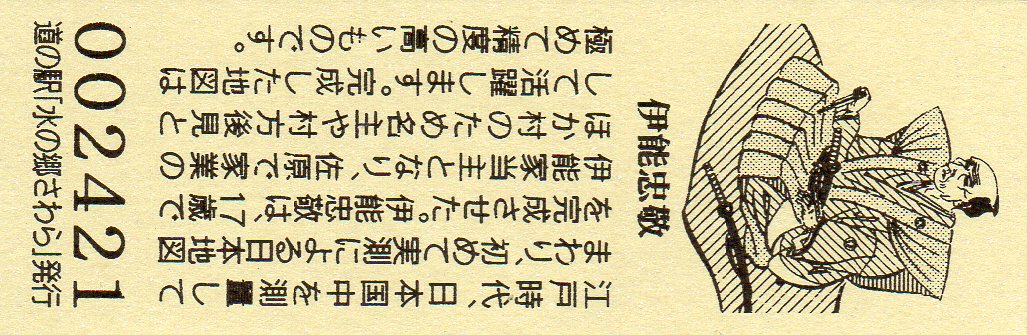 伊能忠敬
江戸時代、日本国中を測量して
まわり、初めて実測による日本地図
を完成させた。伊能忠敬は、17歳で
伊能家当主となり、佐原で家業の
ほか村のため名主や村方後見と
して活躍します。完成した地図は
極めて精度の高いものです。
002421
道の駅「水の郷さわら」発行